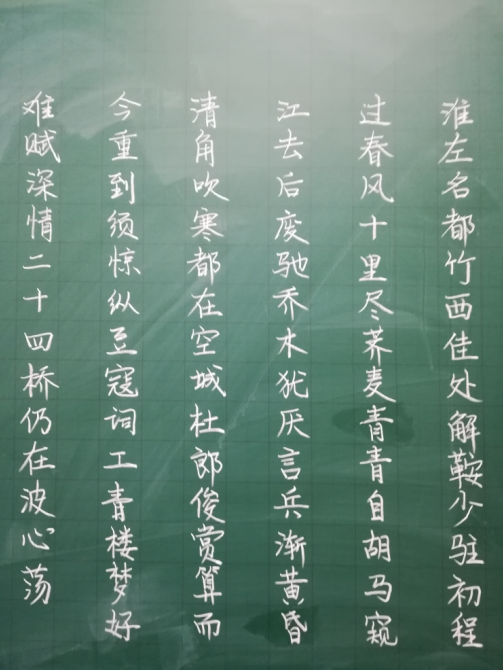 淮左名都竹西佳处解鞍少驻初程
过春风十里尽荠麦青青自胡马窥
江去后废驰乔木犹厌言兵渐黄昏
清角吹寒都在空城杜郎俊赏算而
今重到须惊纵豆寇词工青楼梦好
难赋深情二十四桥仍在波心荡